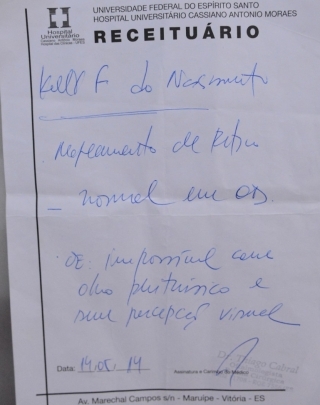 UNIVERSIDADE FEDERAL DO ESPÍRITO SANTO
HOSPITAL UNIVERSITÁRIO CASSIANO ANTONIO MORAES
Hospital
Universitário
RECEITUÁRIO
Kelly F do Nascimento
Mapeamento de Retina
- normal em OD.
OE: impossível com
olho phthisico e
sem percepção visual
Data: 14.05.14
Assinatura e Carimbo do Médico
Av. Marechal Campos s/n - Maruípe - Vitória - ES